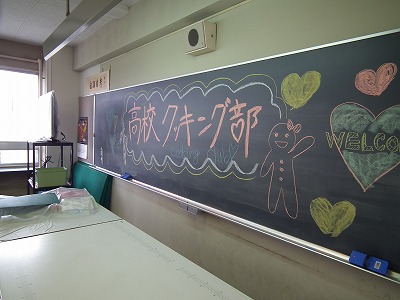 高校クッキング部
WELCO